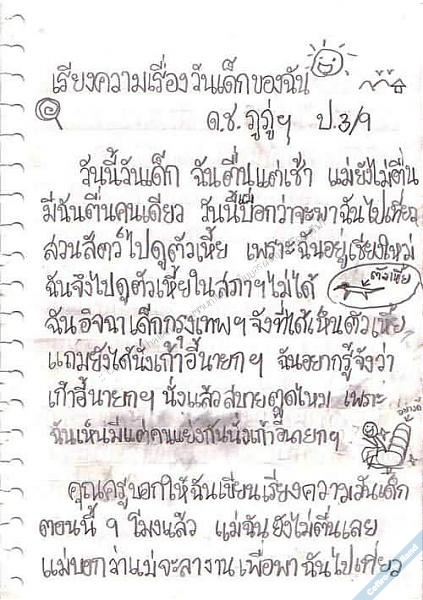 เรียงความเรื่องวันเด็กของฉัน
ด.ช. ภูภู่ฯ ป.3/9
วันนี้วันเด็ก ฉันตื่นแต่เช้า แม่ยังไม่ตื่น
มีฉันตื่นคนเดียว วันนี้ป๊อกว่าจะพาฉันไปเที่ยว
สวนสัตว์ไปดูตัวเหี้ย เพราะฉันอยู่เชียงใหม่
ฉันจึงไปดูตัวเหี้ยในสภาฯไม่ได้
ตัวเหี้ย
ฉันอิจฉาเด็กกรุงเทพฯจังที่ได้เห็นตัวเหี้ย
แถมยังได้นั่งเก้าอี้นายกฯ ฉันอยากรู้จังว่า
เก้าอี้นายกฯ นั่งแล้วสบายตูดไหม เพราะ
ฉันเห็นมีแต่คนแย่งกันนั่งเก้าอี้นายกฯ
คุณครูบอกให้ฉันเขียนเรียงความวันเด็ก
ตอนนี้ 9 โมงแล้ว แม่ฉันยังไม่ตื่นเลย
แม่บอกว่าแม่จะลางาน เพื่อพาฉันไปเที่ยว